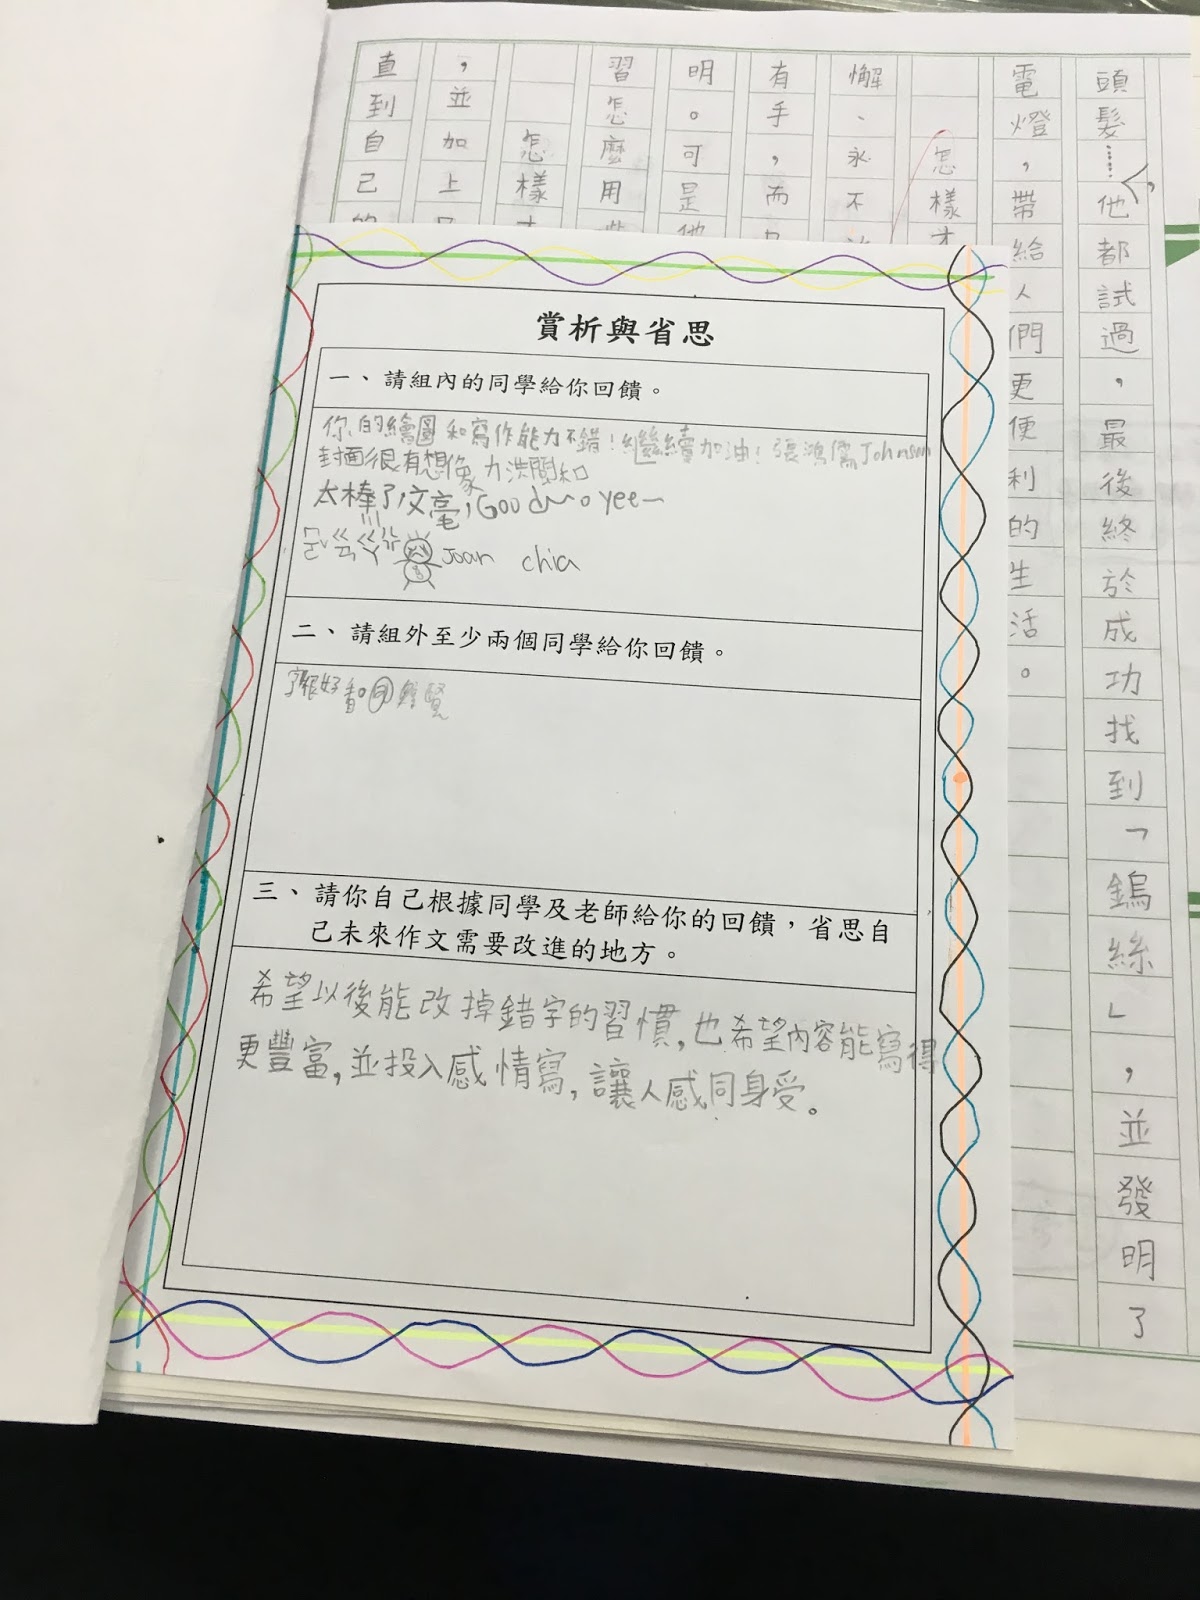 頭髮……，他都試過，最後終於成功找到「鎢絲」，並發明了
電燈，帶給人們更便利的生活。
怎樣才
懈、永不
有手，而
明。可是他
習怎麼用
怎樣才
，並加上
直到自己的
賞析與省思
一、請組內的同學給你回饋。
你的繪圖和寫作能力不錯！繼續加油！張鴻儒Johnson
封面很有想像力洪聞知
太棒了，文毫，Good~。yee~
Joan chia
二、請組外至少兩個同學給你回饋。
字很好看。
三、請你自己根據同學及老師給你的回饋，省思自
己未來作文需要改進的地方。
希望以後能改掉錯字的習慣，也希望內容能寫得
更豐富，並投入感情寫，讓人感同身受。